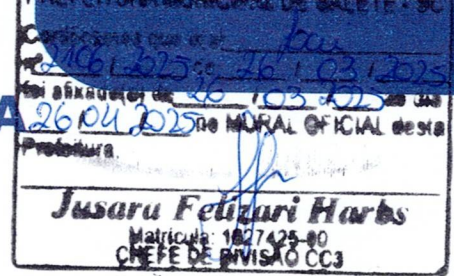 PREFEITURA MUNICIPAL DE SALETE - SC
Certificamos que o(a)
2106 / 2025 de 26 / 03 / 2025
foi afixado(a) de 26 / 03 / 2025 ao dia
A 26 / 04 / 2025 no MURAL OFICIAL desta
Prefeitura.
Jusara Felizari Harbs
Matrícula: 1827425-00
CHEFE DE DIVISÃO CC3